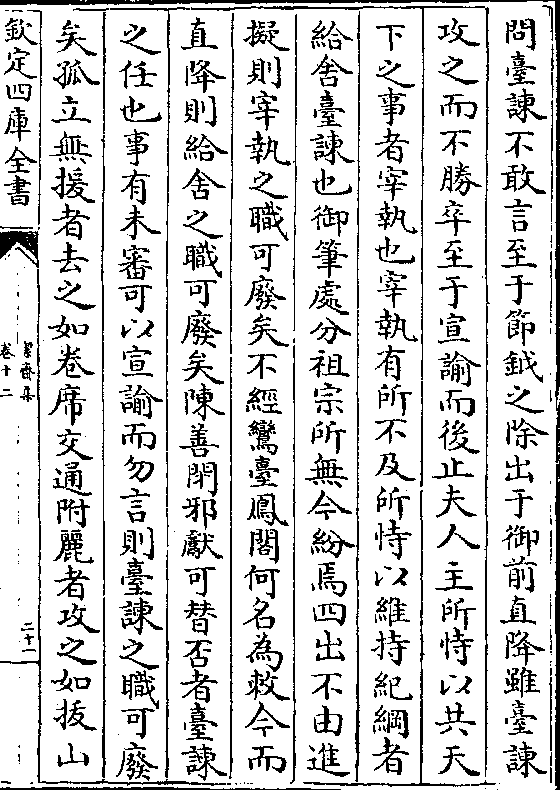 問臺諫不敢言至于節鉞之除出于御前直降雖臺諫
攻之而不勝卒至于宣諭而後止夫人主所恃以共天
下之事者宰執也宰執有所不及所恃以維持紀綱者
給舍臺諫也御筆處分祖宗所無今紛焉四出不由進
擬則宰執之職可廢矣不經鸞臺鳳閣何名為敕今而
直降則給舍之職可廢矣陳善閉邪獻可替否者臺諫
之任也事有未審可以宣諭而勿言則臺諫之職可廢
矣孤立無援者去之如卷席交通附麗者攻之如拔山
欽定四庫全書
絜齋集
卷十二
二十一